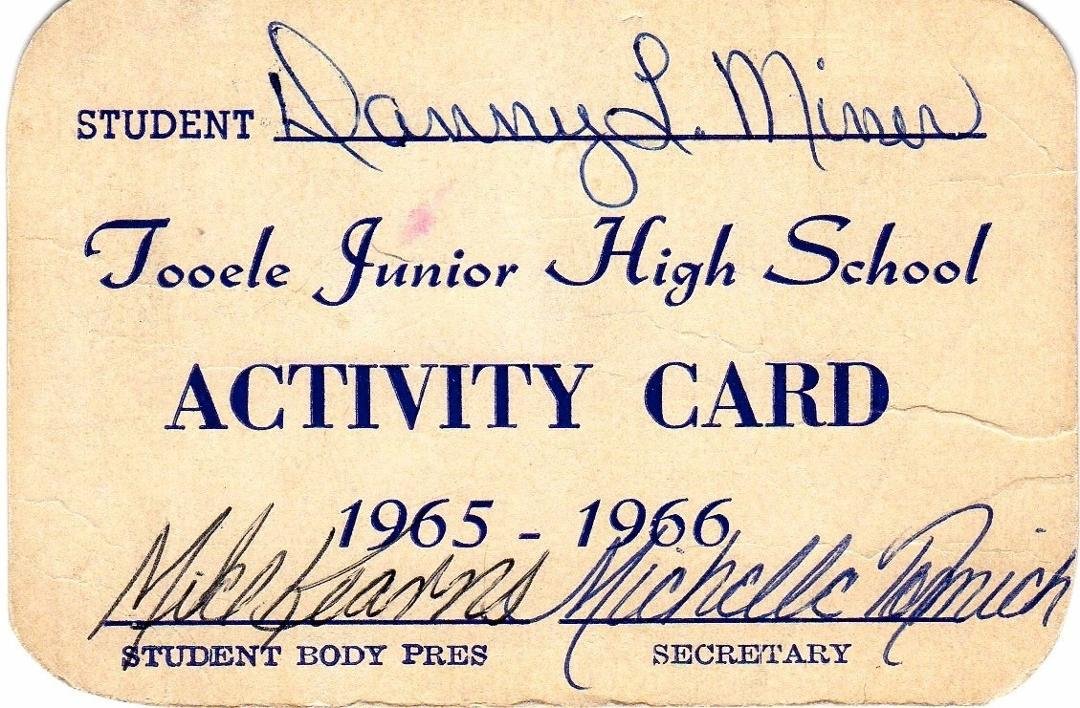 STUDENT Danny L. Miner
Tooele Junior High School
ACTIVITY CARD
1965 - 1966
Mike Kearns Michelle Tomich
STUDENT BODY PRES SECRETARY